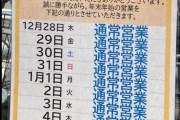 誠に勝手ながら、年末年始の営業を
下記の通りとさせていただきます。
12月28日 木 通常営業
29日 金 通常営業
30日 土 通常営業
31日 日 通常営業
1月1日 月 通常営業
2日 火 通常営業
3日 水 通常営業
4日 木 通常営業